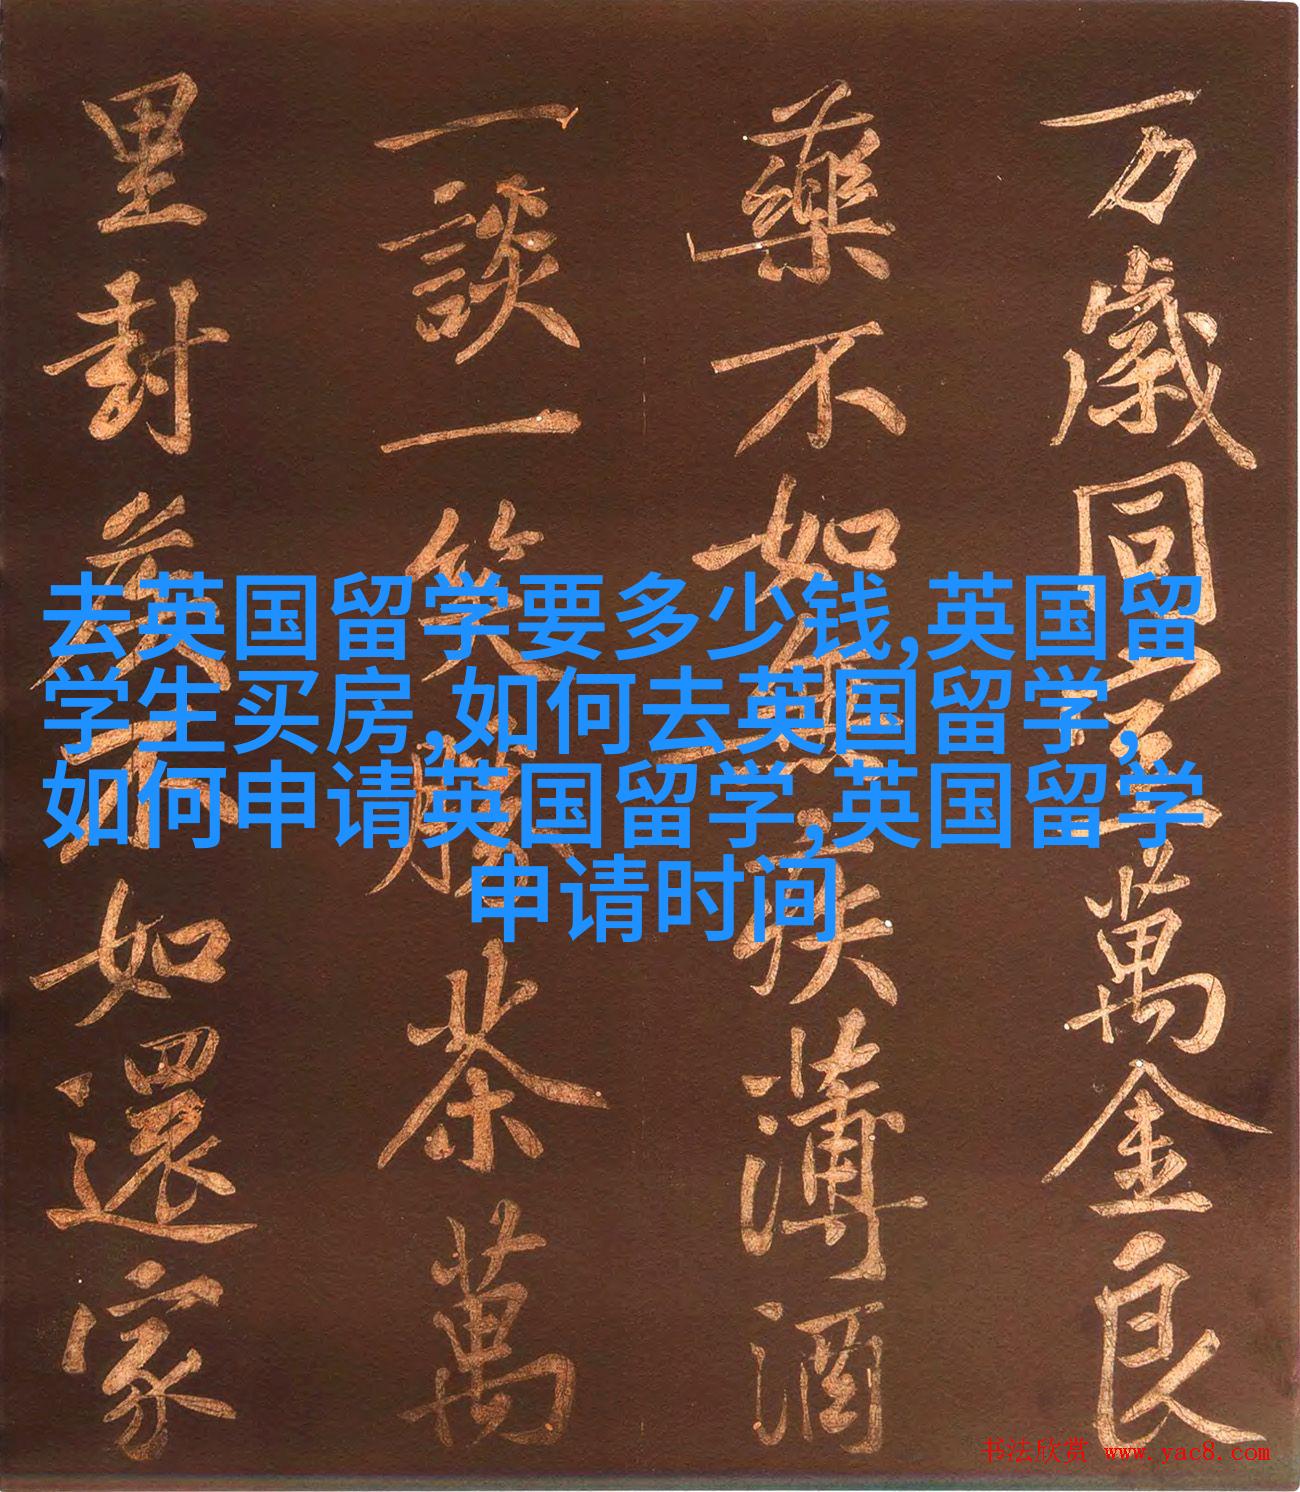 万歲同室萬金良
藥不如無疾薄酒
一談一笑勝茶萬
里封侯不如還家
去英国留学要多少钱,英国留
学生买房,如何去英国留学,
如何申请英国留学,英国留学
申请时间
书法欣赏 www.yac8.com